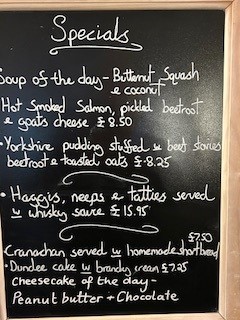 Specials
Soup of the day - Butternut Squash
& coconut
Hot Smoked Salmon, pickled beetroot
& goats cheese £8.50
• Yorkshire pudding stuffed w beef
beetroot & toasted oats £8.25
• Haggis, neeps & tatties served
w whisky sauce £15.95
£7.50
Cranachan served w homemade shortbread
• Dundee cake w brandy cream £7.25
Cheesecake of the day -
Peanut butter + Chocolate